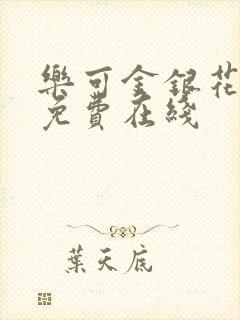 樂可金銀花
免費在綫
葉天底